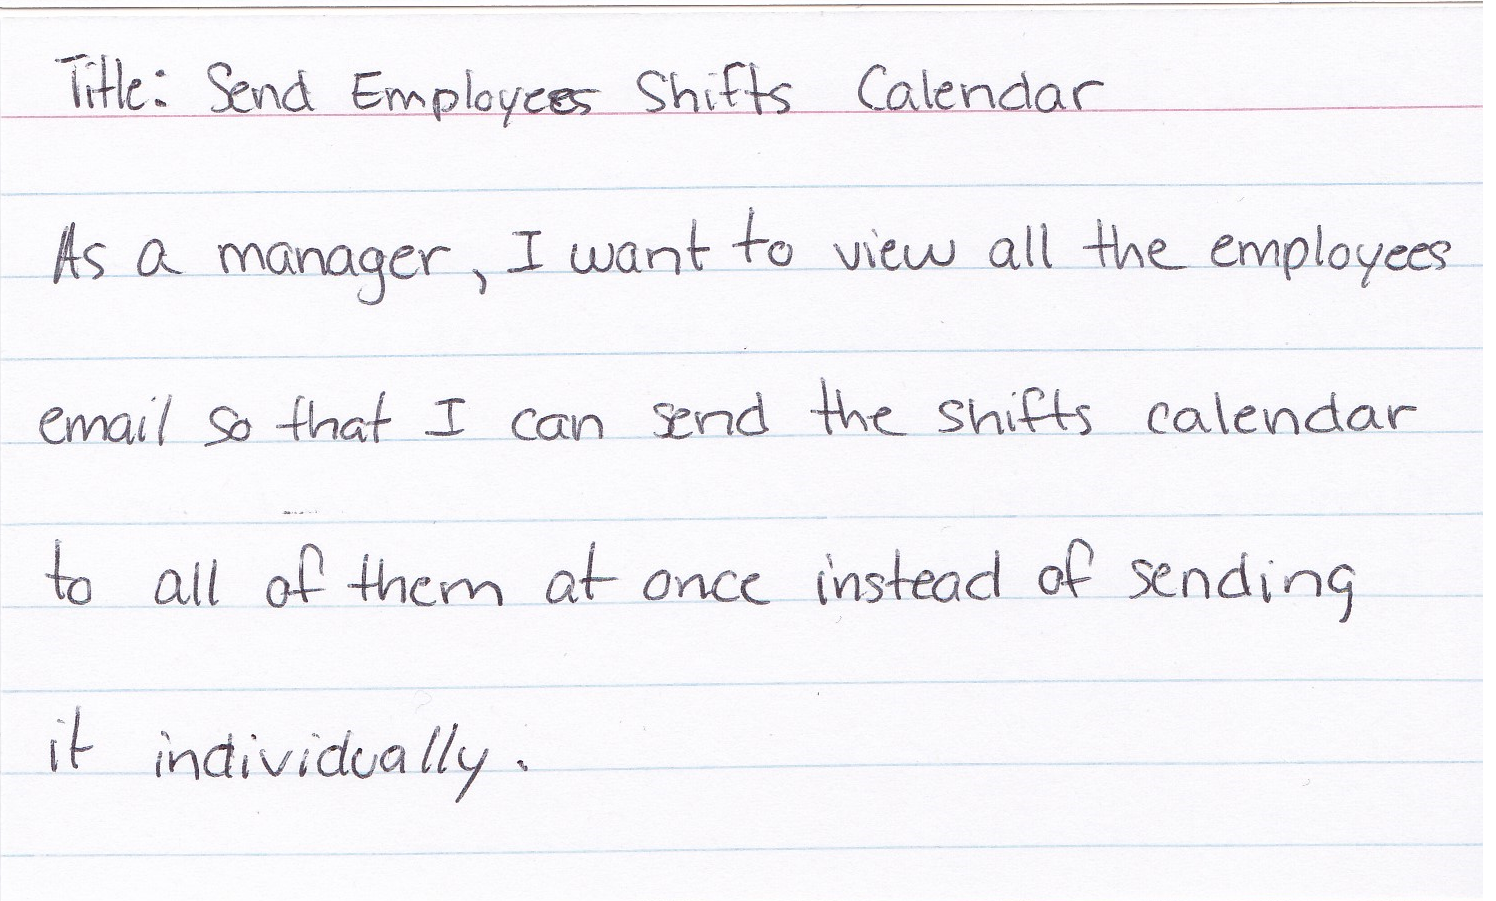 Title: Send Employees Shifts Calendar
As a manager, I want to view all the employees
email so that I can send the shifts calendar
to all of them at once instead of sending
it individually.